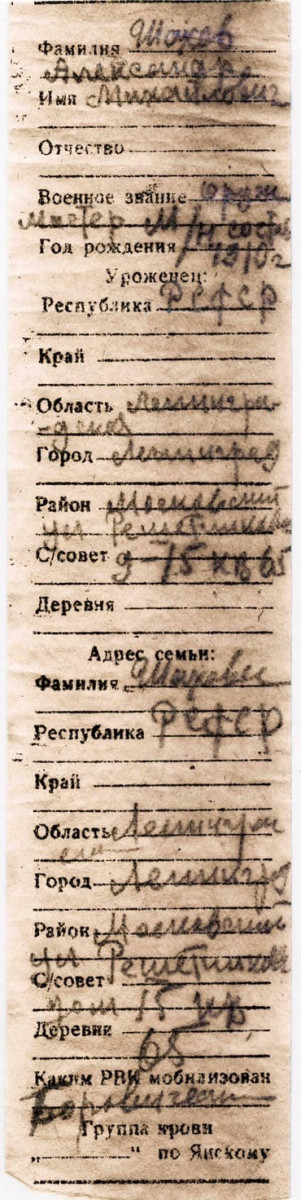 Фамилия Шахов
Александр
Имя Михайлович
Отчество
Военное звание оруж
мастер М/н соств
Год рождения 1910г
Уроженец:
Республика РСФСР
Край
Область Ленингра
-дская
Город Ленинград
Район Московский
ул Решетникова
С/совет д 15 кв 65
Деревня
Адрес семьи:
Фамилия
Республика РСФСР
Край
Область Ленинград
Город Ленинград
Район Московский
ул Решетникова
С/совет
дом 15 кв
Деревня
65
Каким РВК мобилизован
Боровичский
Группа крови
„ “ по Янскому